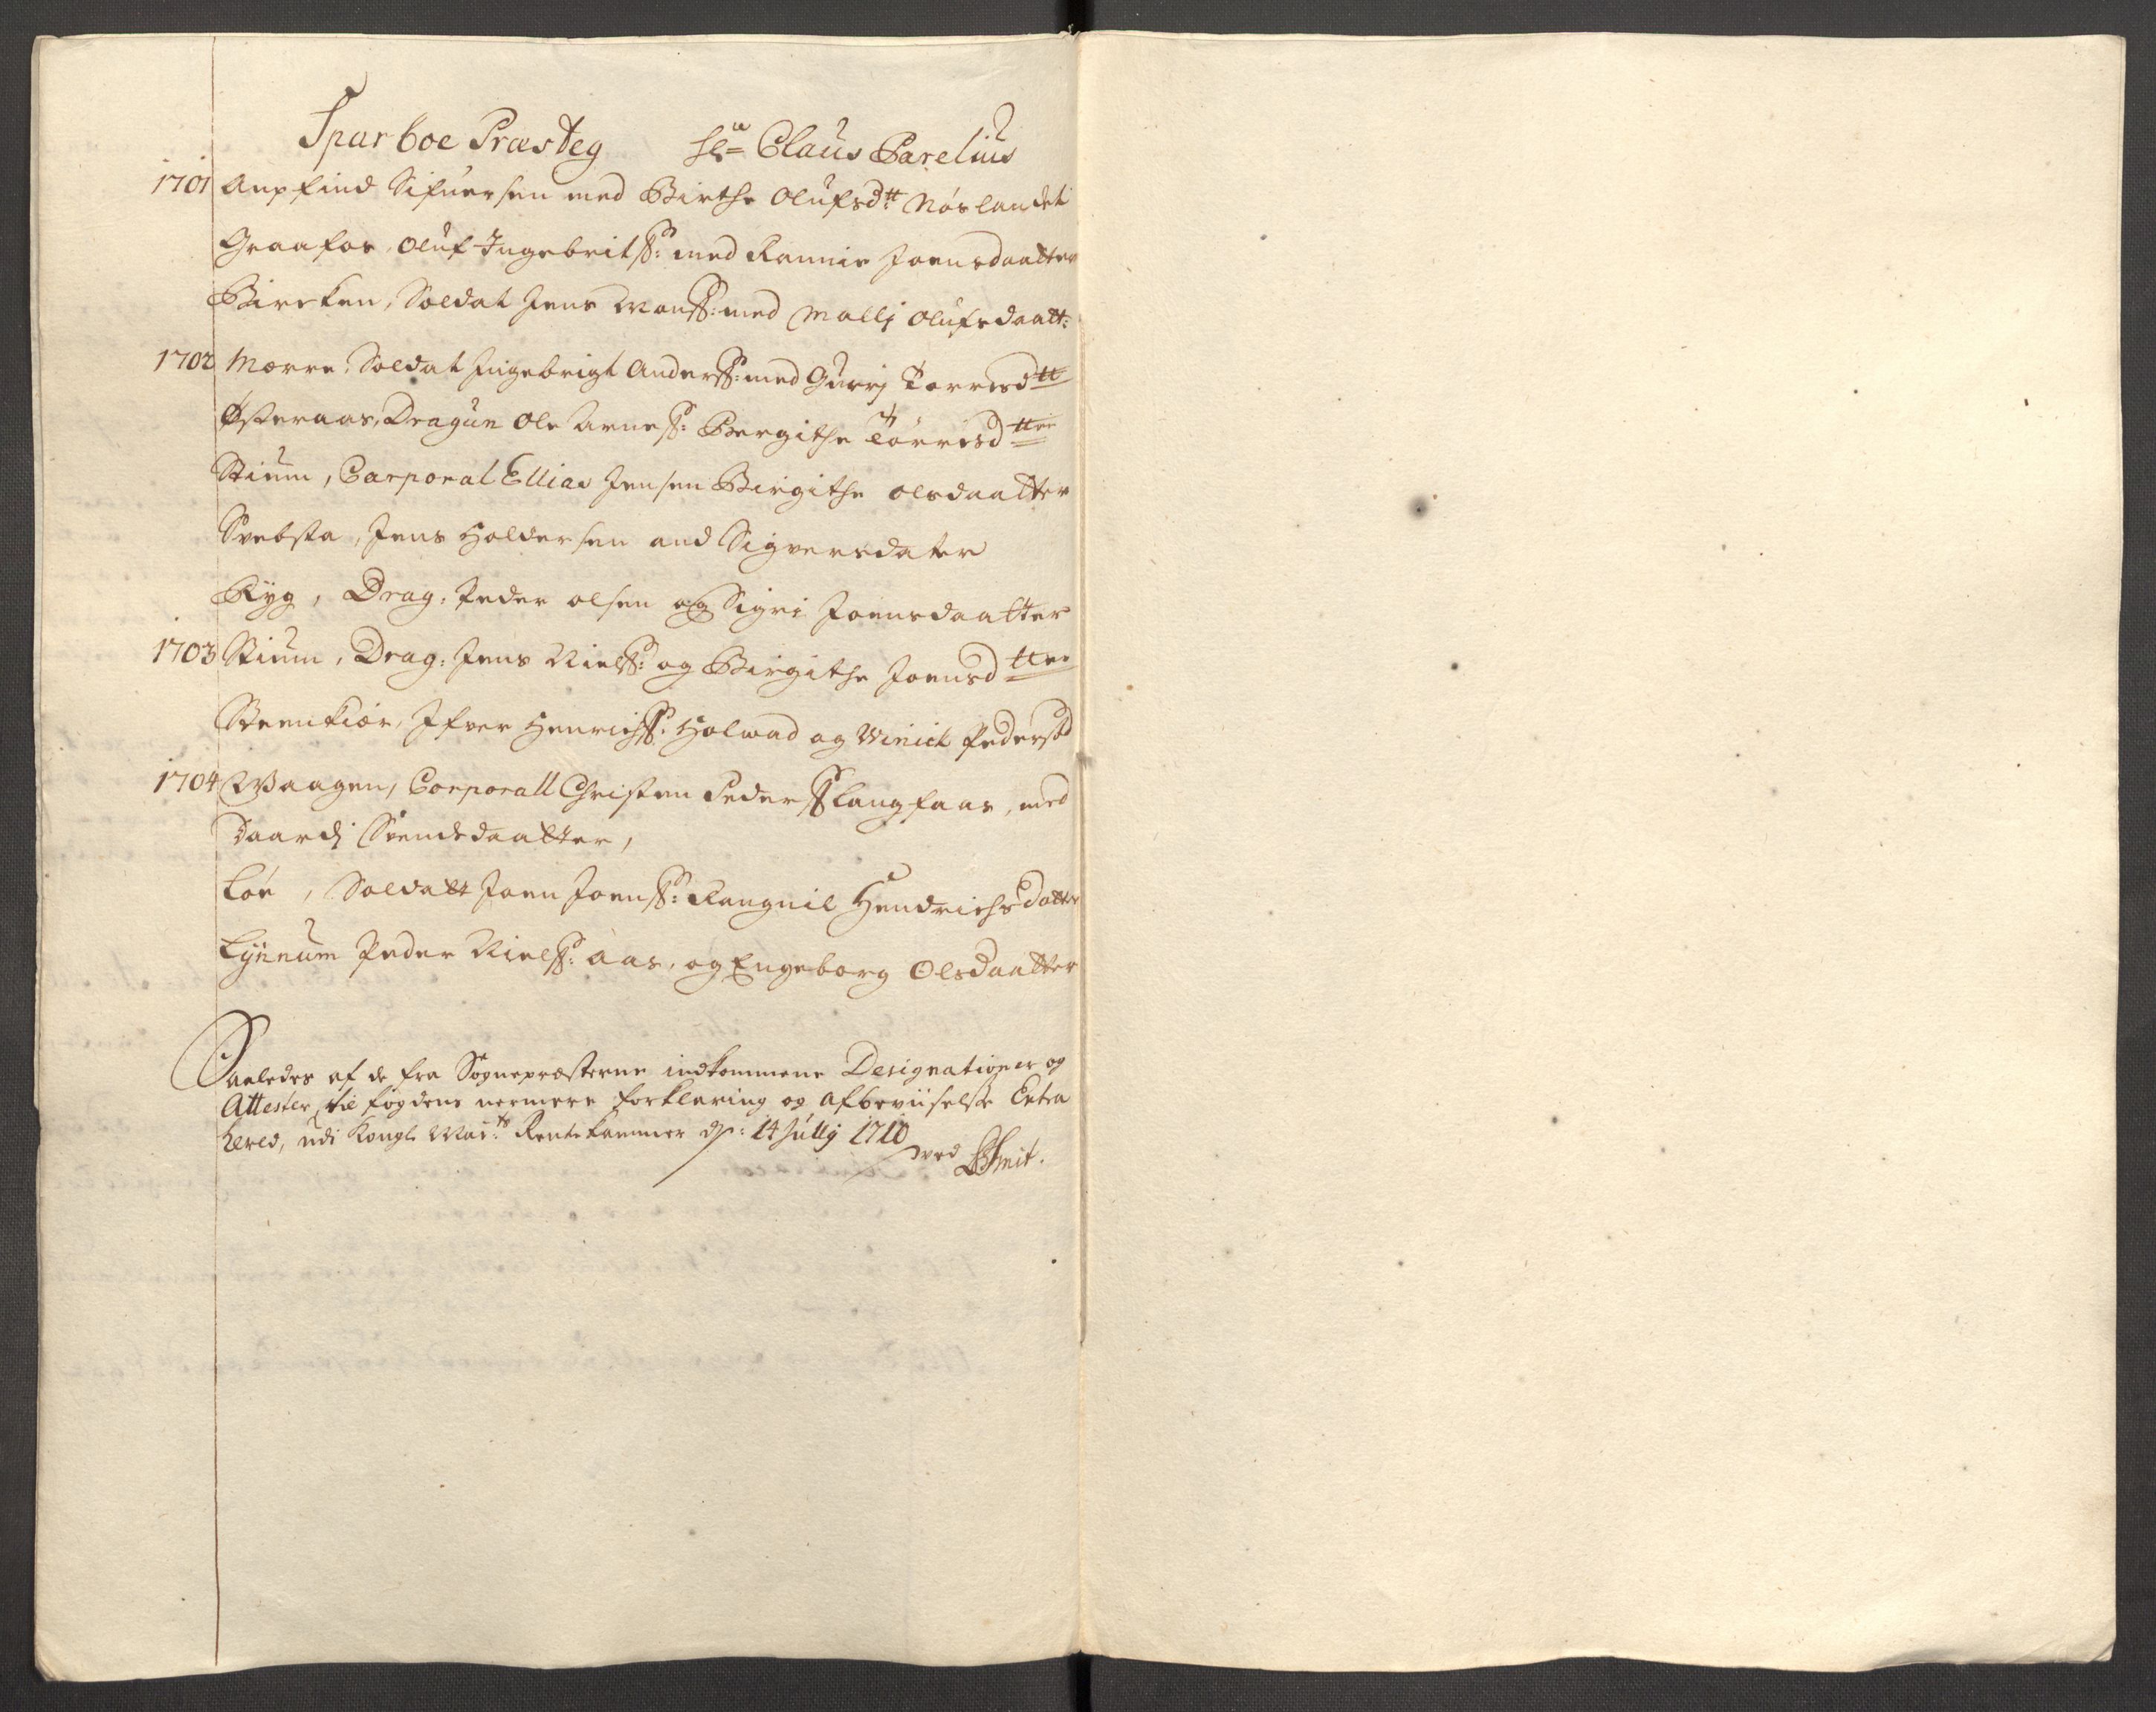 Sparboe Præsteg Hr Claus Parelius
1701 Anfind Sifuersen med Birthe Olufsdtt Nøslandet
Graafos, Oluf Ingebritss: med Rannie Joensdaatter
Bircken, Soldat Jens Monss: med Mallj Olufsdaatt:
1702 Mærre, Soldat Ingebrigt Anderss: med Gurrj Torresdtt
Østeraas, Dragun Ole Arness: Bergithe Tørrisdtter
Stium, Carporal Ellias Jensen Birgithe olsdaatter
Svebsta, Jens Holdersen and Sigversdater
Ryg, Drag: Peder olsen og Sigri Joensdaatter
1703 Stium, Drag: Jens Nielss: og Birgithe Joensdtter
Steenkiær, Ifver Henrichss: Holwad og Winick Pedersd
1704 Waagen, Corporall Christen Pederss Langfaas, med
Daardj Svendsdaatter,
Løe, Soldatt Joen Joenss: Rangnil Hendrichsdatter
Lynnum Peder Nielss: Aas, og Engeborg Olsdaatter
Saaledes af de fra Sognepræsterne indkommene Designationer og
Attester, til fogdens nermere forklaring og afbeviiselse Extra
hered, udi Kongl Mai:ts Rentekammer d: 14 Jullij 1710
ved Smit.